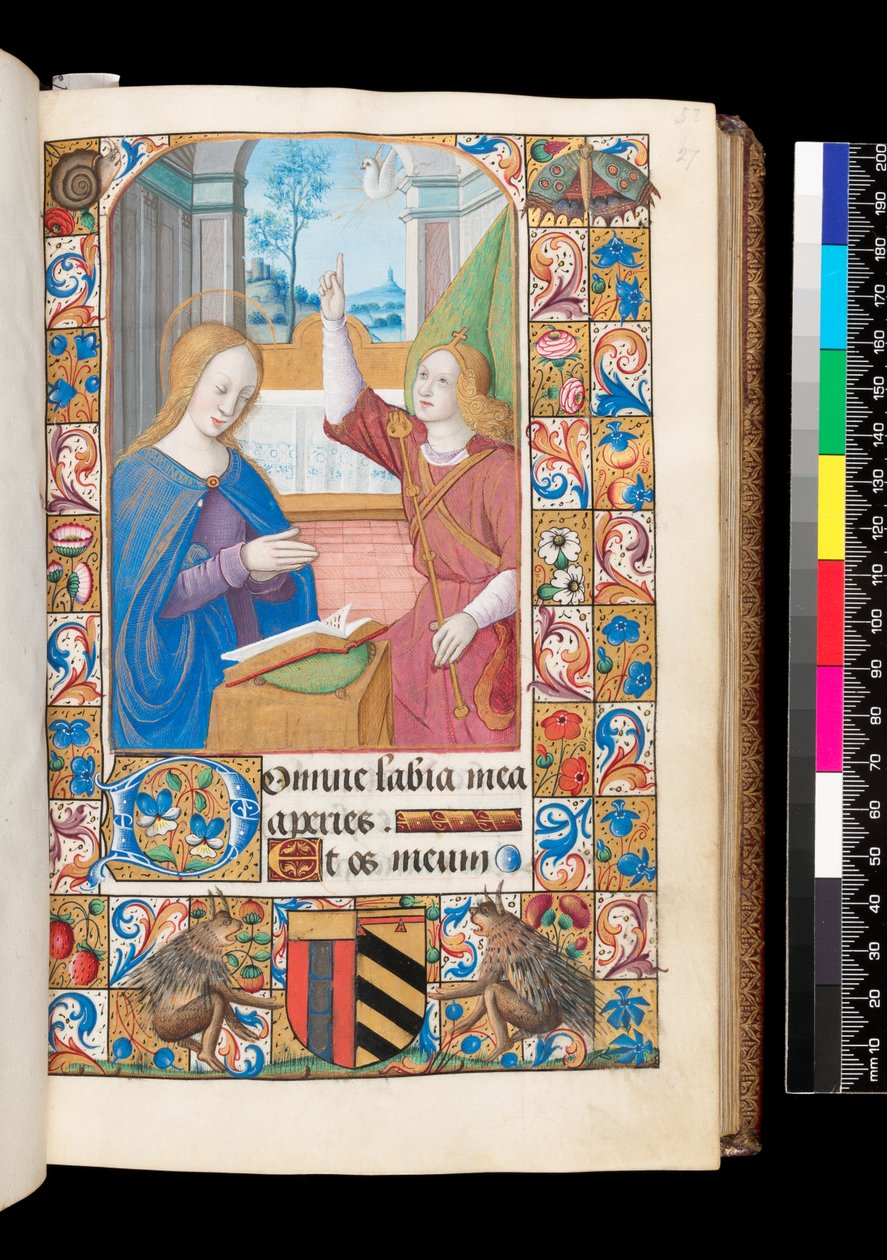 53
27
Domine labia mea
aperies.
Et os meum
200
190
180
170
160
150
140
130
120
110
100
90
80
70
60
50
40
30
20
mm 10